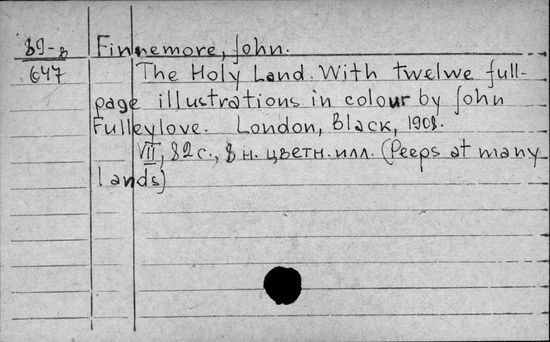 89-8 Finnemore, John.
647 The Holy Land. With twelwe full-
page illustrations in colour by John
Fulleylove. London, Black, 1908.
VII, 82 с., 8 н. цветн. илл. (Peeps at many
lands)